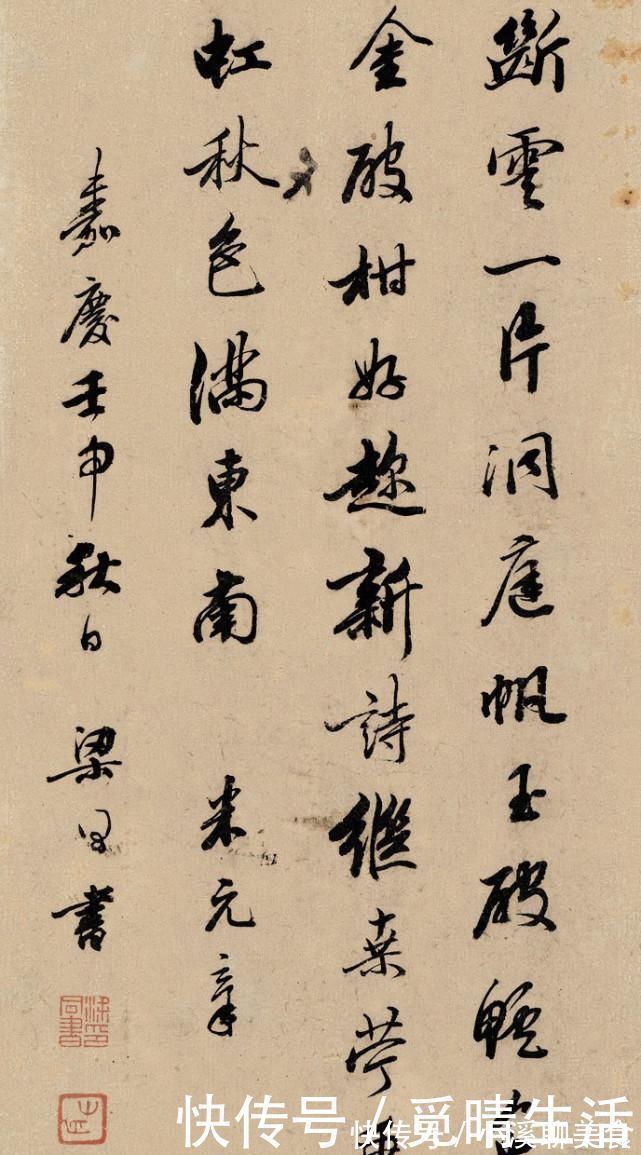 斷雲一片洞庭帆玉破鱸
金破柑好趁新詩繼桑苧
虹秋色滿東南 米元章
嘉慶壬申秋日 梁同書
快传号 / 觅晴生活
快传号 / 溪聊美食